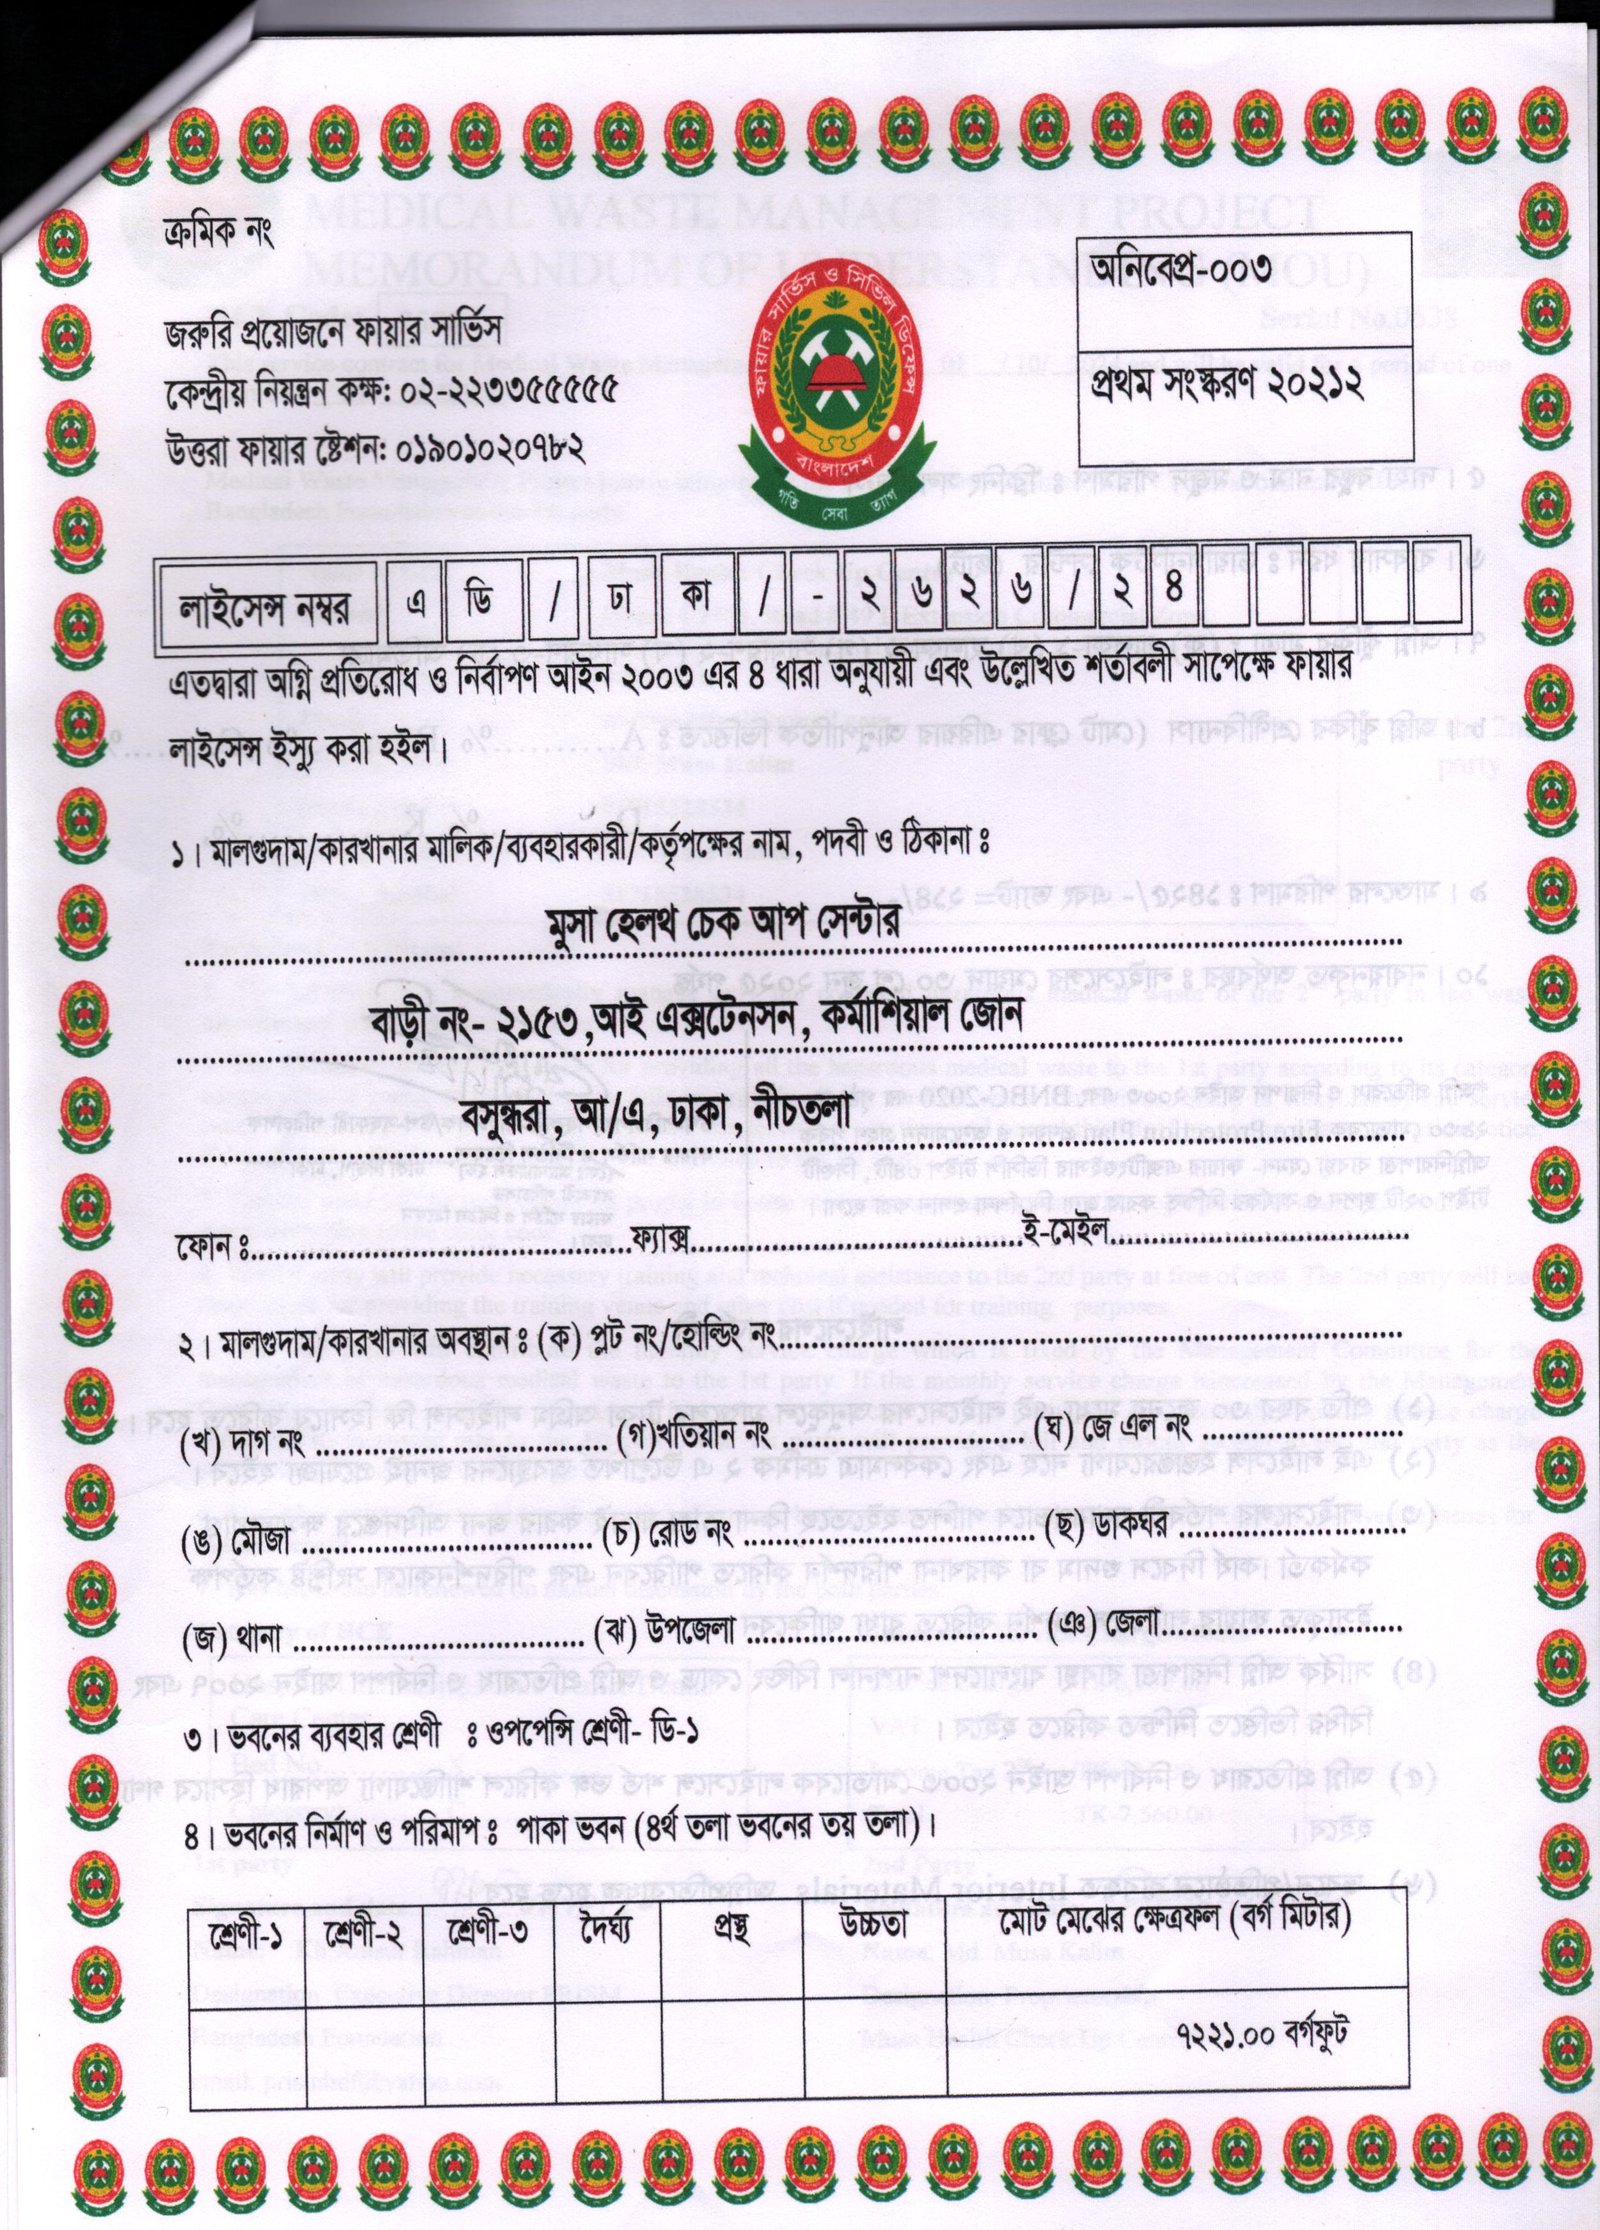 ক্রমিক নং
জরুরি প্রয়োজনে ফায়ার সার্ভিস
কেন্দ্রীয় নিয়ন্ত্রন কক্ষ: ০২-২২৩৩৫৫৫৫৫
উত্তরা ফায়ার ষ্টেশন: ০১৯০১০২০৭৮২
ফায়ার সার্ভিস ও সিভিল ডিফেন্স
বাংলাদেশ
গতি সেবা ত্যাগ
অনিবেপ্র-০০৩
প্রথম সংস্করণ ২০২১২
লাইসেন্স নম্বর এ ডি / ঢা কা / - ২ ৬ ২ ৬ / ২ ৪
এতদ্বারা অগ্নি প্রতিরোধ ও নির্বাপণ আইন ২০০৩ এর ৪ ধারা অনুযায়ী এবং উল্লেখিত শর্তাবলী সাপেক্ষে ফায়ার
লাইসেন্স ইস্যু করা হইল।
১। মালগুদাম/কারখানার মালিক/ব্যবহারকারী/কর্তৃপক্ষের নাম, পদবী ও ঠিকানা ঃ
মুসা হেলথ চেক আপ সেন্টার
বাড়ী নং- ২১৫৩,আই এক্সটেনসন, কর্মাশিয়াল জোন
বসুন্ধরা, আ/এ, ঢাকা, নীচতলা
ফোন ঃ......................................ফ্যাক্স..................................ই-মেইল..............................
২। মালগুদাম/কারখানার অবস্থান ঃ (ক) প্লট নং/হোল্ডিং নং..............................................................
(খ) দাগ নং .............................. (গ)খতিয়ান নং ......................... (ঘ) জে এল নং .....................
(ঙ) মৌজা .............................. (চ) রোড নং .............................. (ছ) ডাকঘর .......................
(জ) থানা .............................. (ঝ) উপজেলা .............................. (ঞ) জেলা.........................
৩। ভবনের ব্যবহার শ্রেণী ঃ ওপপেন্সি শ্রেণী- ডি-১
৪। ভবনের নির্মাণ ও পরিমাপ ঃ পাকা ভবন (৪র্থ তলা ভবনের ৩য় তলা)।
শ্রেণী-১ শ্রেণী-২ শ্রেণী-৩ দৈর্ঘ্য প্রস্থ উচ্চতা মোট মেঝের ক্ষেত্রফল (বর্গ মিটার)
৭২২১.০০ বর্গফুট